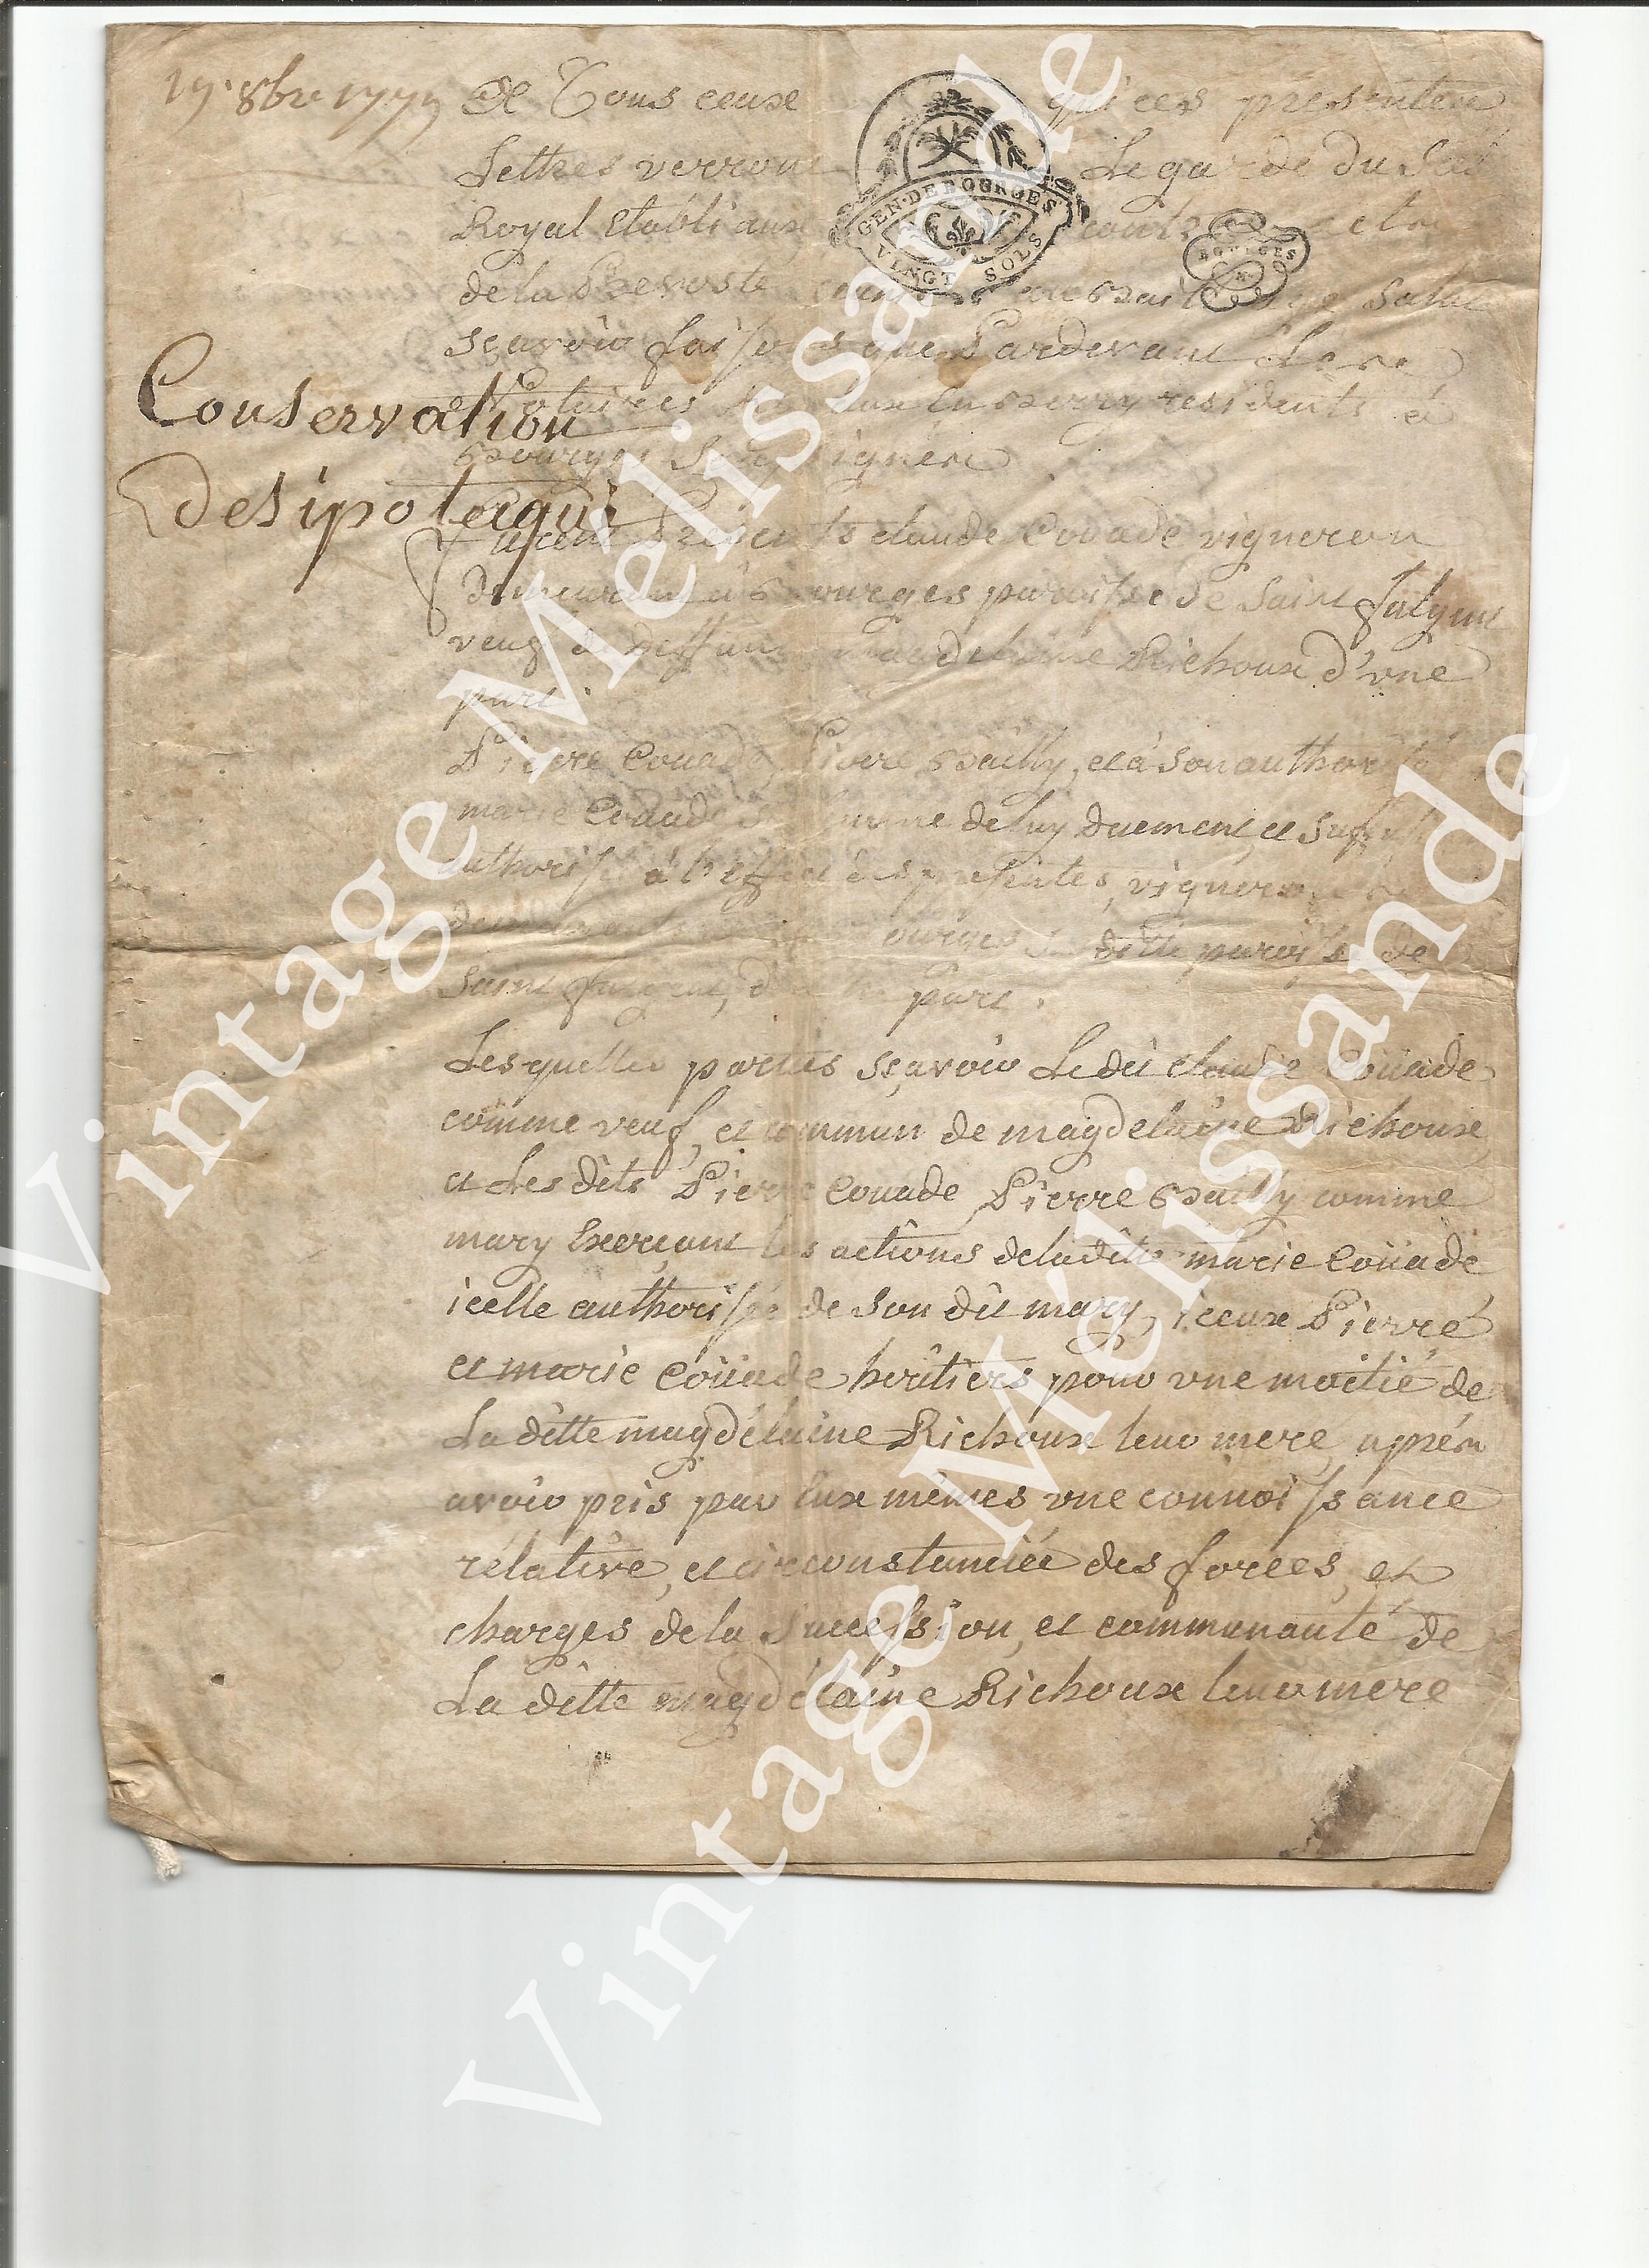 19. 8bre 1779
A Tous ceux qui ces presentes
Lettres verront Le garde du Scel
Royal Etabli aux
de la Prevosté Salut
sçavoir faisons que Pardevant Les
Notaires en Berry residents a
Bourges
Conservation
des ipotequi
GEN·DE BOURGES
VINGT SOLS
BOURGES
furent Présents claude Coüade vigneron
demeurant a Bourges paroisse de Saint fulgent
veuf de deffunte magdelaine Richoux d'une
part.
Pierre Coüade, Pierre Bailly, et a son authorité
marie Coüade sa femme de luy duement et
authorisée à l'effet des presentes, vignerons
Bourges ditte paroisse de
Saint fulgent, d' part.
Les quelles parties sçavoir Le dit claude Coüade
comme veuf, et commun de magdelaine Richoux
et Les dits Pierre Coüade Pierre Bailly comme
mary Exerçant les actions de la ditte marie Coüade
icelle authorisée de son dit mary, iceux Pierre
et marie Coüade héritiers pour une moitié de
La ditte magdelaine Richoux leur mere, aprés
avoir pris par Eux mêmes une connoissance
rélative, et circonstanciée des forces, et
charges de la Succession, et communauté de
La ditte magdélaine Richoux leur mere
Vintage Melissande
Vintage Melissande